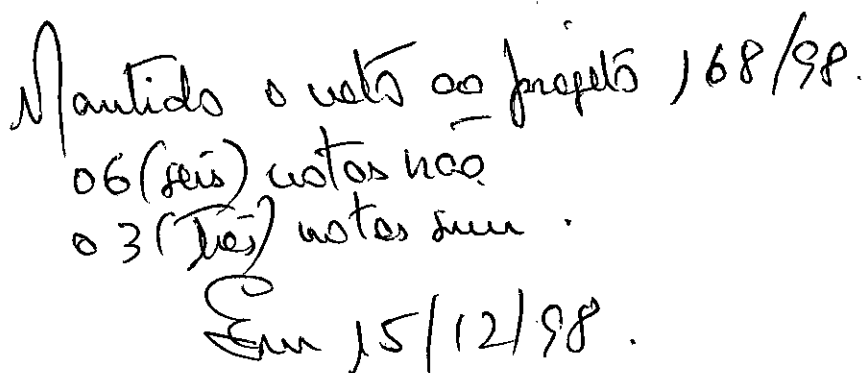 Mantido o veto ao projeto 168/98.
06 (seis) votos não
03 (Três) votos sim.
Em 15/12/98.